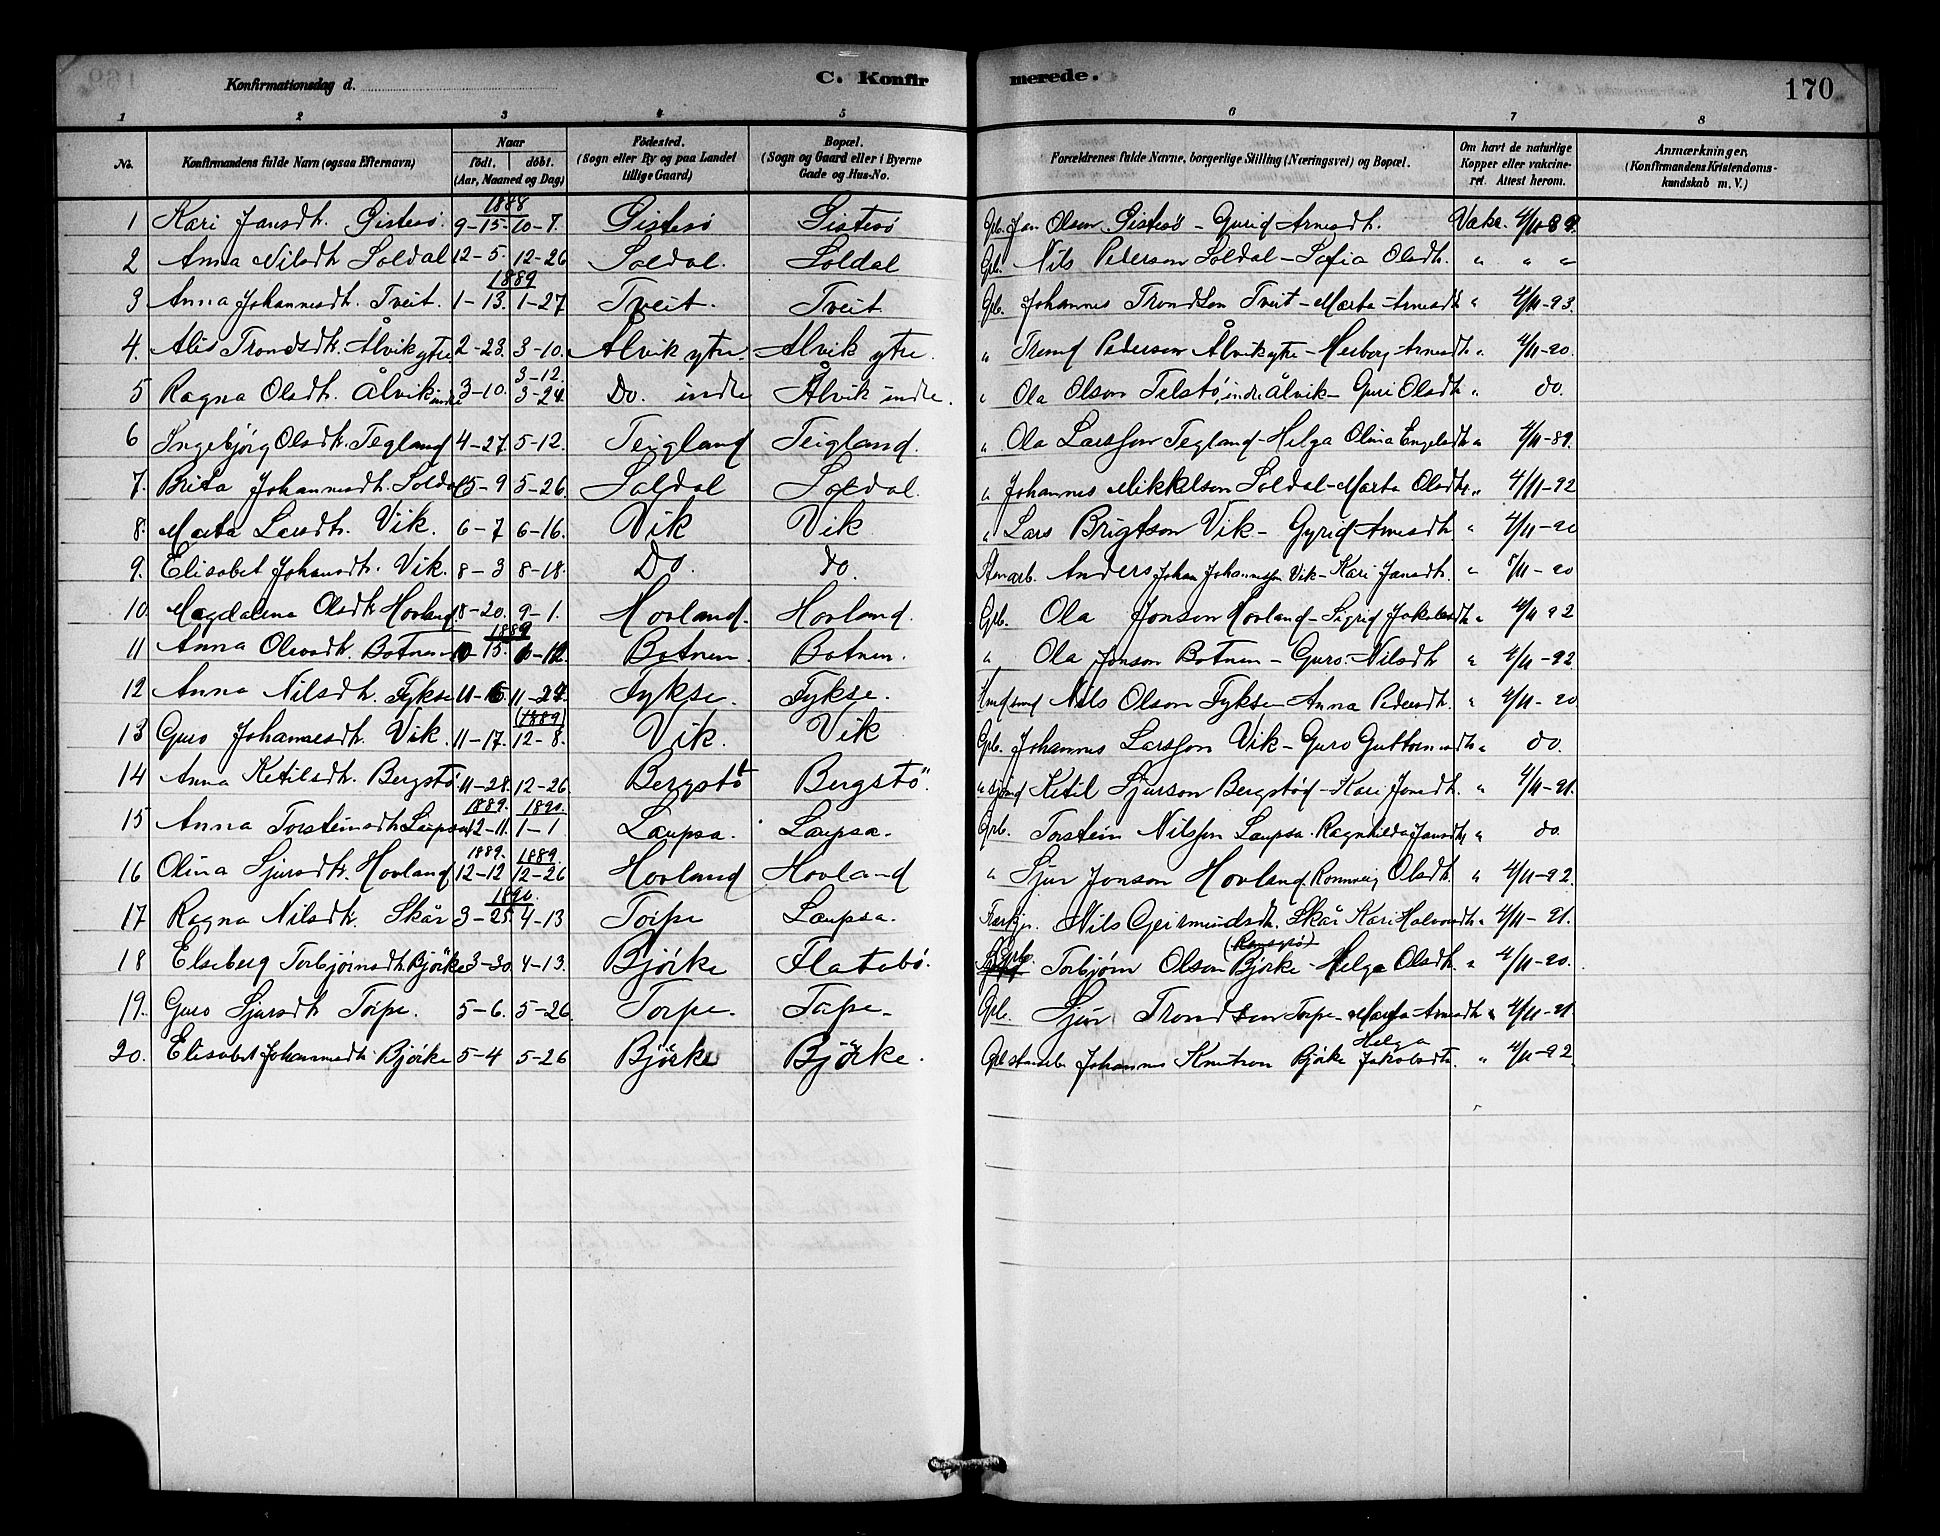 Konfirmationsdag d. C. Konfirmerede. 170
1 2 3 4 5 6 7 8
No. Konfirmandens fulde Navn (ogsaa Efternavn) Naar födt. döbt. (Aar, Maaned og Dag) Födested. (Sogn eller By og paa Landet tillige Gaard) Bopæl. (Sogn og Gaard eller i Byerne Gade og Hus-No. Forældrenes fulde Navne, borgerlige Stilling (Næringsvei) og Bopæl. Om havt de naturlige Kopper eller vakcineret. Attest herom. Anmærkninger, (Konfirmandens Kristendomskundskab m. V.)
1888
1 Kari Jansdtr. Gistesö. 9-15- 10-7. Gistesö Gistesö Grb. Jan Olson Gistesö - Gurid Arnesdtr. Vakc. 4/11-89.
2 Anna Nilsdtr Soldal 12-5. 12-26 Soldal. Soldal Grb. Nils Pederson Soldal - Sofia Olsdtr. " " "
1889
3 Anna Johannesdtr. Tveit. 1-13. 1-27 Tveit. Tveit Grb. Johannes Trondson Tveit - Marta Arnesdtr " 4/11-93.
4. Alis Trondsdtr. Ålvik ytre 2-23. 3-10. Ålvik ytre. Ålvik ytre. " Trond Pederson Ålvik ytre - Herborg Arnesdtr " 4/11-90.
3-12.
5 Ragna Olsdtr. Ålvik indre 3-10. 3-24. Do. indre Ålvik indre. " Ola Olson Telstö, indr. Ålvik - Guri Olsdtr " do.
6 Ingebjörg Olsdtr. Tegland 4-27. 5-12. Teigland Teigland. " Ola Larsson Tegland - Helga Olina Engelsdtr " 4/11-89.
7. Brita Johannesdtr. Soldal 5-9 5-26. Soldal Soldal. " Johannes Mikkelson Soldal - Marta Olsdtr. " 4/11-92
8. Marta Larsdtr. Vik. 6-7 6-16. Vik Vik " Lars Brigtson Vik - Gyrid Arnesdtr " 4/11-90
9. Elisabet Johansdtr. Vik. 8-3 8-18. Do. do. Anders Johan Johannesson Vik - Kari Jansdtr. " 5/11-90
10. Magdalena Olsdtr Hovland. 8-20. 9-1. Hovland. Hovland. Grb. Ola Jonson Hovland - Sigrid Jakobsdtr " 4/11 92
1889
11 Anna Olsdtr. Botnen 10-15. Botnen. Botnen. " Ola Jonson Botnen - Guro Nilsdtr " 4/11-92.
12 Anna Nilsdtr. Fykse 11-6 11-24. Fykse. Fykse. Nils Olson Fykse - Anna Pedersdtr. " 4/11-90
(1889)
13 Guro Johannesdtr. Vik. 11-17. 12-8. Vik. Vik Grb. Johannes Larsson Vik - Guro Guttormsdtr " do.
14 Anna Ketilsdtr. Bergstö 11-28. 12-26. Bergstö Bergstö. " Ketil Sjurson Bergstöd - Kari Jonsdtr. " 4/11-91.
1889. 1890.
15 Anna Torsteinsdtr Laupsa 12-11. 1-1. Laupsa. Laupsa. Grb. Torstein Nilsson Laupsa. Ragnhilda Jansdtr " do.
1889. 1889.
16 Olina Sjursdtr. Hovland 12-12 12-26 Hovland Hovland " Sjur Jonson Hovland. Rannveig Olsdtr. " 4/11-92.
1890.
17 Ragna Nilsdtr. Skår 3-25. 4-13 Torpe Laupsa. Nils Geirmundsdtr. Skår Kari Halvorsdtr " 4/11-91.
18 Elseberg Torbjörnsdtr. Björke 3-30. 4-13. Björke Flatabö. Grb. Torbjörn Olson Björke - Helga Olsdtr. " 4/11-90.
19. Guro Sjursdtr Torpe. 5-6. 5-26. Torpe. Torpe. Grb. Sjur Trondson Torpe - Marta Arnesdtr " 4/11-91.
20. Elisabet Johannesdtr. Björke 5-4 5-26 Björke Björke. Johannes Knutson Björke Helga Jakobsdtr. " 4/11-92.